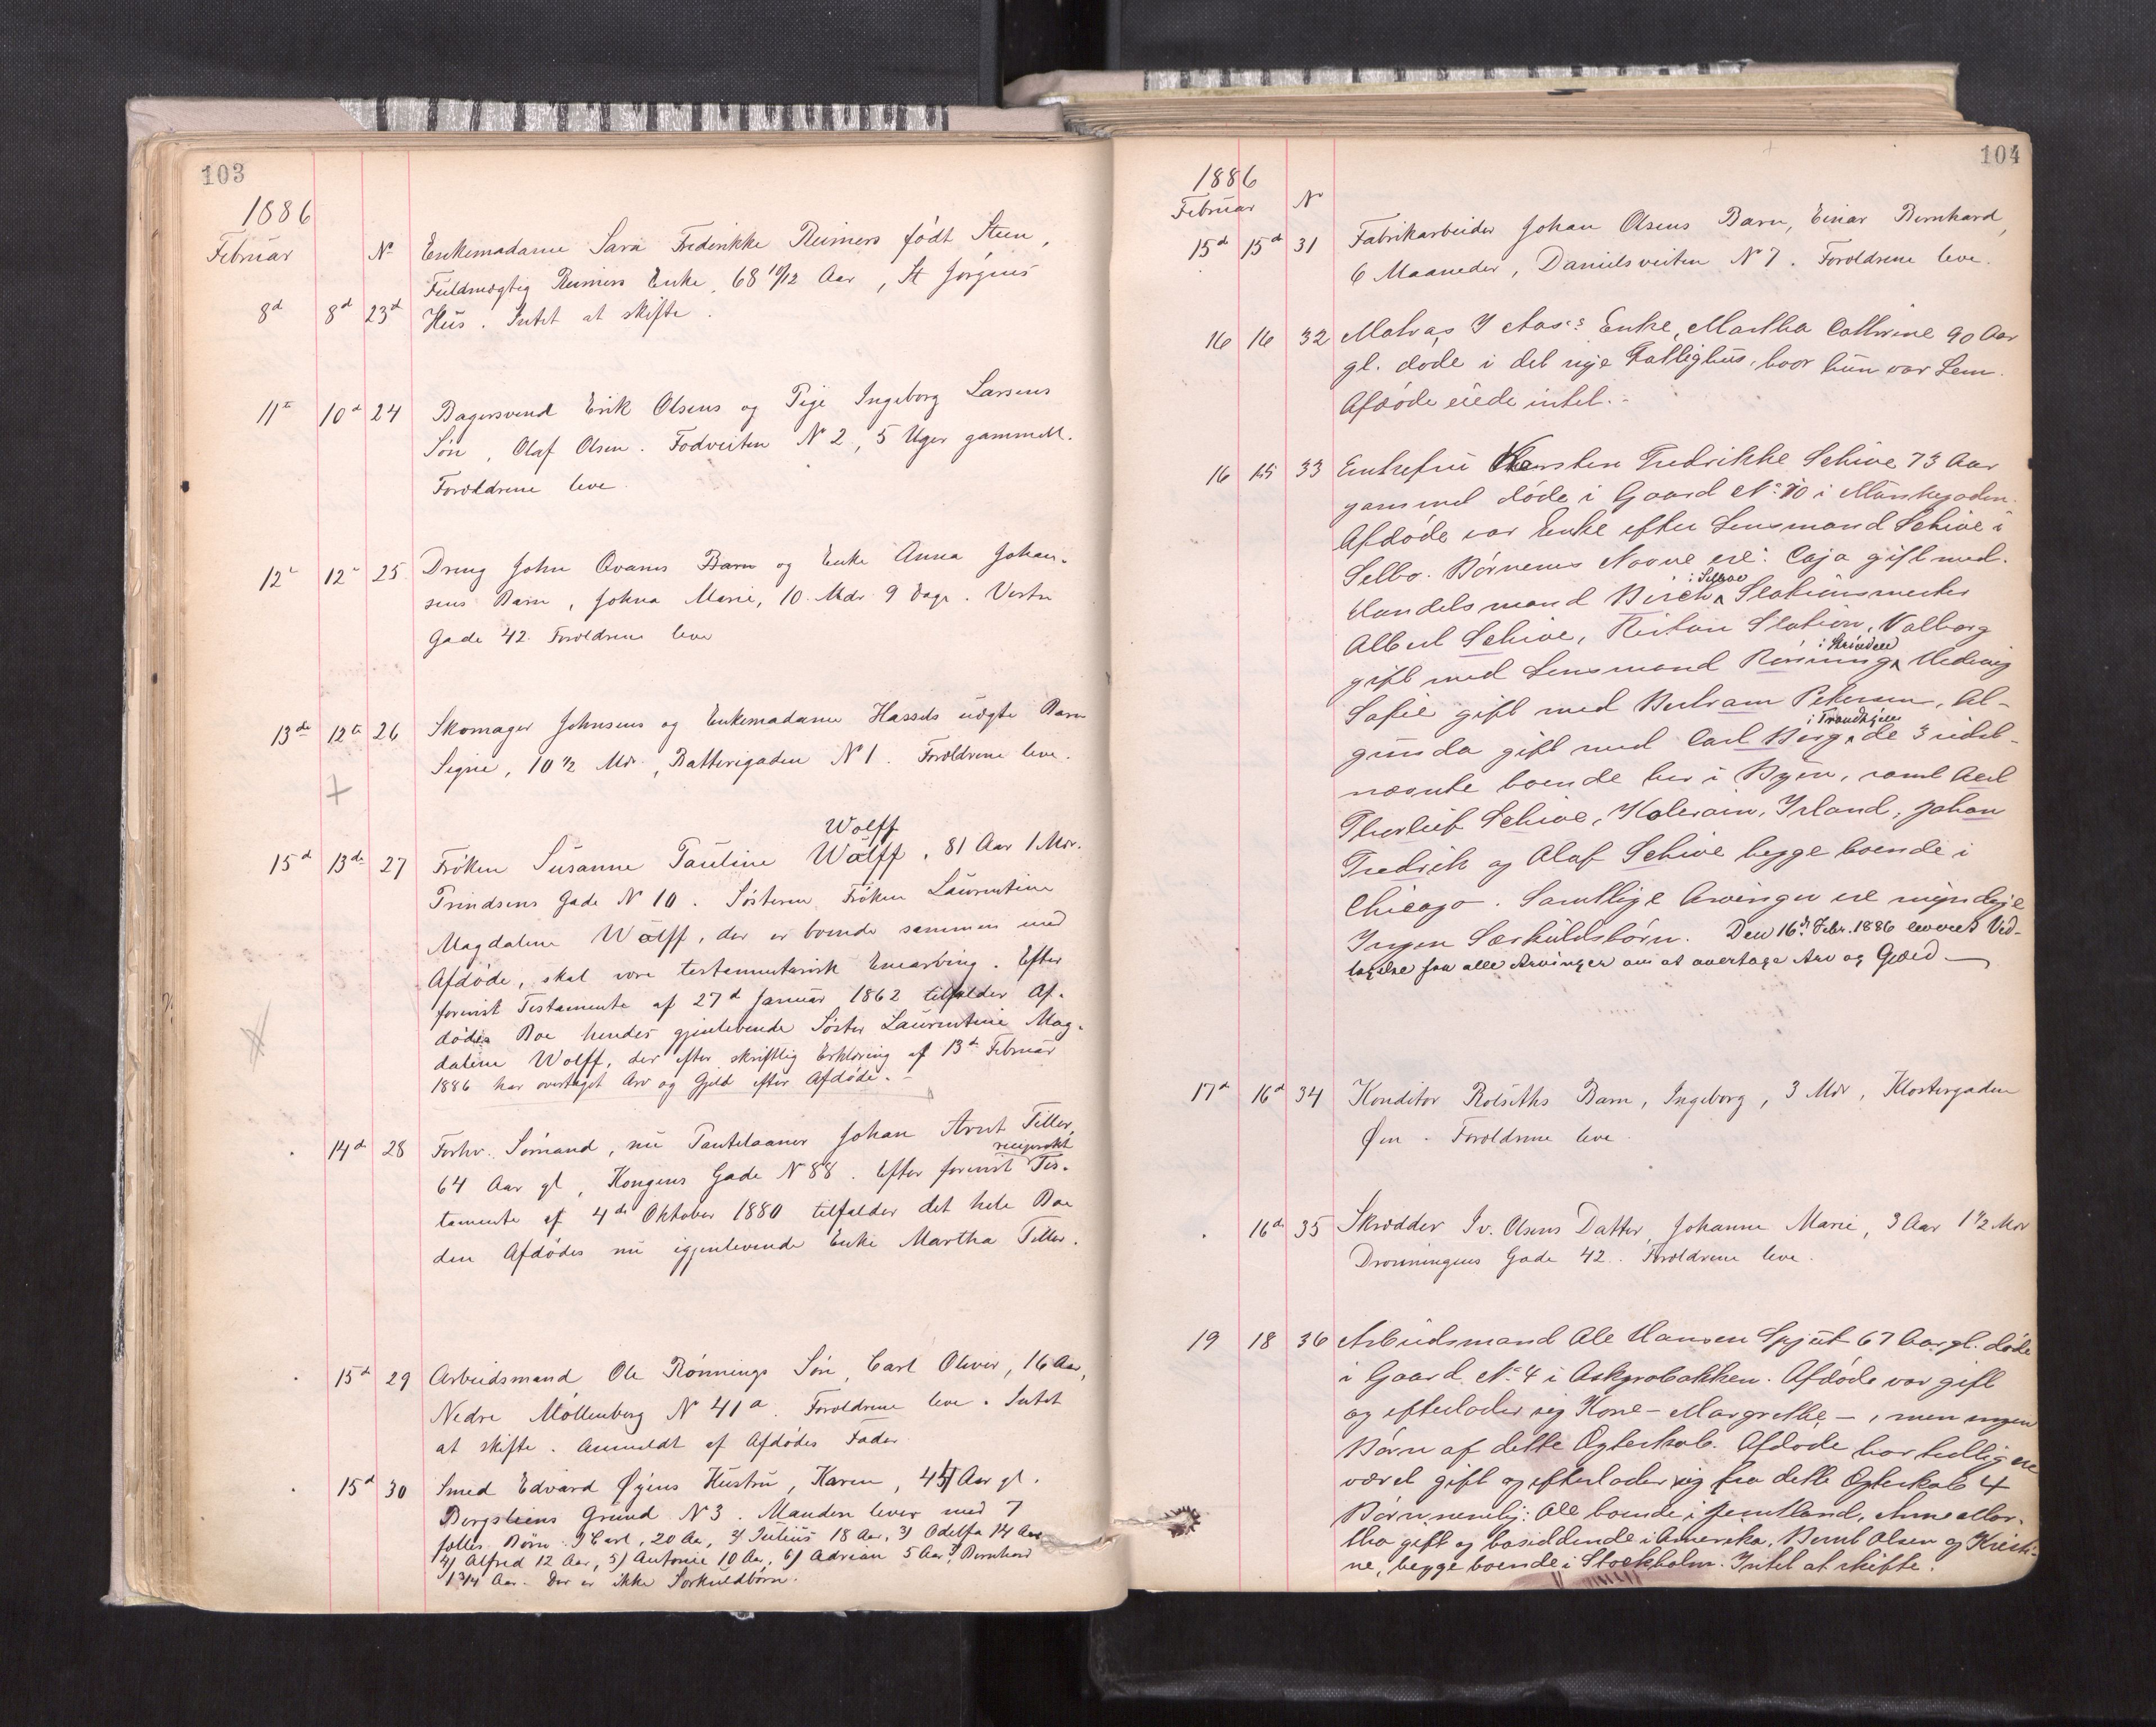 103
1886
Februar
No
Enkemadame Sara Frederikke Reimers født Steen,
Fuldmægtig Reimers Enke, 68 10/12 Aar, St Jørgens
8d 8d 23d Hus. Intet at skifte.
11te 10d 24 Bagersvend Erik Olsens og Pige Ingeborg Larsens
Søn, Olaf Olsen. Fodveiten No 2, 5 Uger gammel.
Forældrene leve
12te 12te 25 Dreng John Qvams Barn og Enke Anna Johan-
sens Barn, Johna Marie, 10 Mdr 9 Dage. Vestre
Gade 42. Forældrene leve
13de 12te 26 Skomager Johnsens og Enkemadame Hassels uægte Barn
Signe, 10 1/2 Mdr., Batterigaden No 1. Forældrene leve.
Wolff
15d 13de 27 Frøken Susanne Pauline Wolff, 81 Aar 1 Mdr.
Prindsens Gade No 10. Søsteren Frøken Laurentine
Magdalene Wolff, der er boende sammen med
Afdøde, skal være testamentarisk Enearving. Efter
forevist Testamente af 27d Januar 1862 tilfalder Af-
dødes Boe hendes gjenlevende Søster Laurentine Mag-
dalene Wolff, der efter skriftlig Erklæring af 13de Februar
1886 har overtaget Arv og Gjeld efter Afdøde.
14d 28 Forhv. Sømand, nu Pantelaaner Johan Arnt Tiller,
reciprokt
64 Aar gl, Kongens Gade No 88. Efter forevist Tes-
tamente af 4de Oktober 1880 tilfalder det hele Boe
den Afdødes nu igjenlevende Enke Martha Tiller.
15d 29 Arbeidsmand Ole Rønnings Søn, Carl Oliver, 16 Aar,
Nedre Møllenberg No 41a. Forældrene leve. Intet
at skifte. Anmeldt af Afdødes Fader
15d 30 Smed Edvard Øyens Hustru, Karen, 45 Aar gl.
Bergsliens Grund No 3. Manden lever med 7
fælles Børn: 1) Carl, 20 Aar, 2) Julius 18 Aar, 3) Odelfa 14 Aar
4) Alfred 12 Aar, 5) Antonie 10 Aar, 6) Adrian 5 Aar, 7) Bernhard
1 3/4 Aar. Der er ikke Særkuldbørn.
104
1886
Februar No
15d 15d 31 Fabrikarbeider Johan Olsens Barn, Einar Bernhard,
6 Maaneder, Danielsveiten No 7. Forældrene leve.
16 16 32 Matros Enke, Martha Cathrine 90 Aar
gl. døde i det nye Fattighus, hvor hun var Lem.
Afdøde eiede intet.
16 15 33 Enkefru Karsten Fredrikke Schive 73 Aar
gammel døde i Gaard No 10 i Munkegaden.
Afdøde var Enke efter Lensmand Schive i
Selbo. Børnenes Navne ere: Caja gift med
i Selbo
Handelsmand Birch, Stationsmester
Albert Schive, Reitan Station, Valborg
i Strinden
gift med Lensmand Rønning, Hedevig
Sofie gift med Bertram Petersen, Al-
i Trondhjem
gunda gift med Carl Berg, de 3 sidst-
nævnte boende her i Byen, samt Axel
Thorleif Schive, Kolerain, Irland, Johan
Fredrik og Olaf Schive begge boende i
Chicago. Samtlige Arvinger ere myndige
Ingen Særkuldsbørn. Den 16de Febr. 1886 leveret Ved-
tagelse fra alle Arvinger om at overtage Arv og Gjeld
17d 16d 34 Konditor Rolseths Barn, Ingeborg, 3 Mdr, Klostergaden
Øen. Forældrene leve.
16d 35 Skrædder Iv. Olsens Datter, Johanne Marie, 3 Aar 1 1/2 Mdr
Dronningens Gade 42. Forældrene leve.
19 18 36 Arbeidsmand Ole Hansen Spjut 67 Aar gl. døde
i Gaard No 4 i Askgrobakken. Afdøde var gift
og efterlader sig Kone - Margrethe -, men ingen
Børn af dette Ægteskab. Afdøde har tidligere
været gift og efterlader sig fra dette Ægteskab 4
Børn, nemlig: Ole boende i Jemtland, Anne Mar-
tha gift og bosiddende i Amerika, Bernt Olsen og Kristi-
ne, begge boende i Stockholm. Intet at skifte.